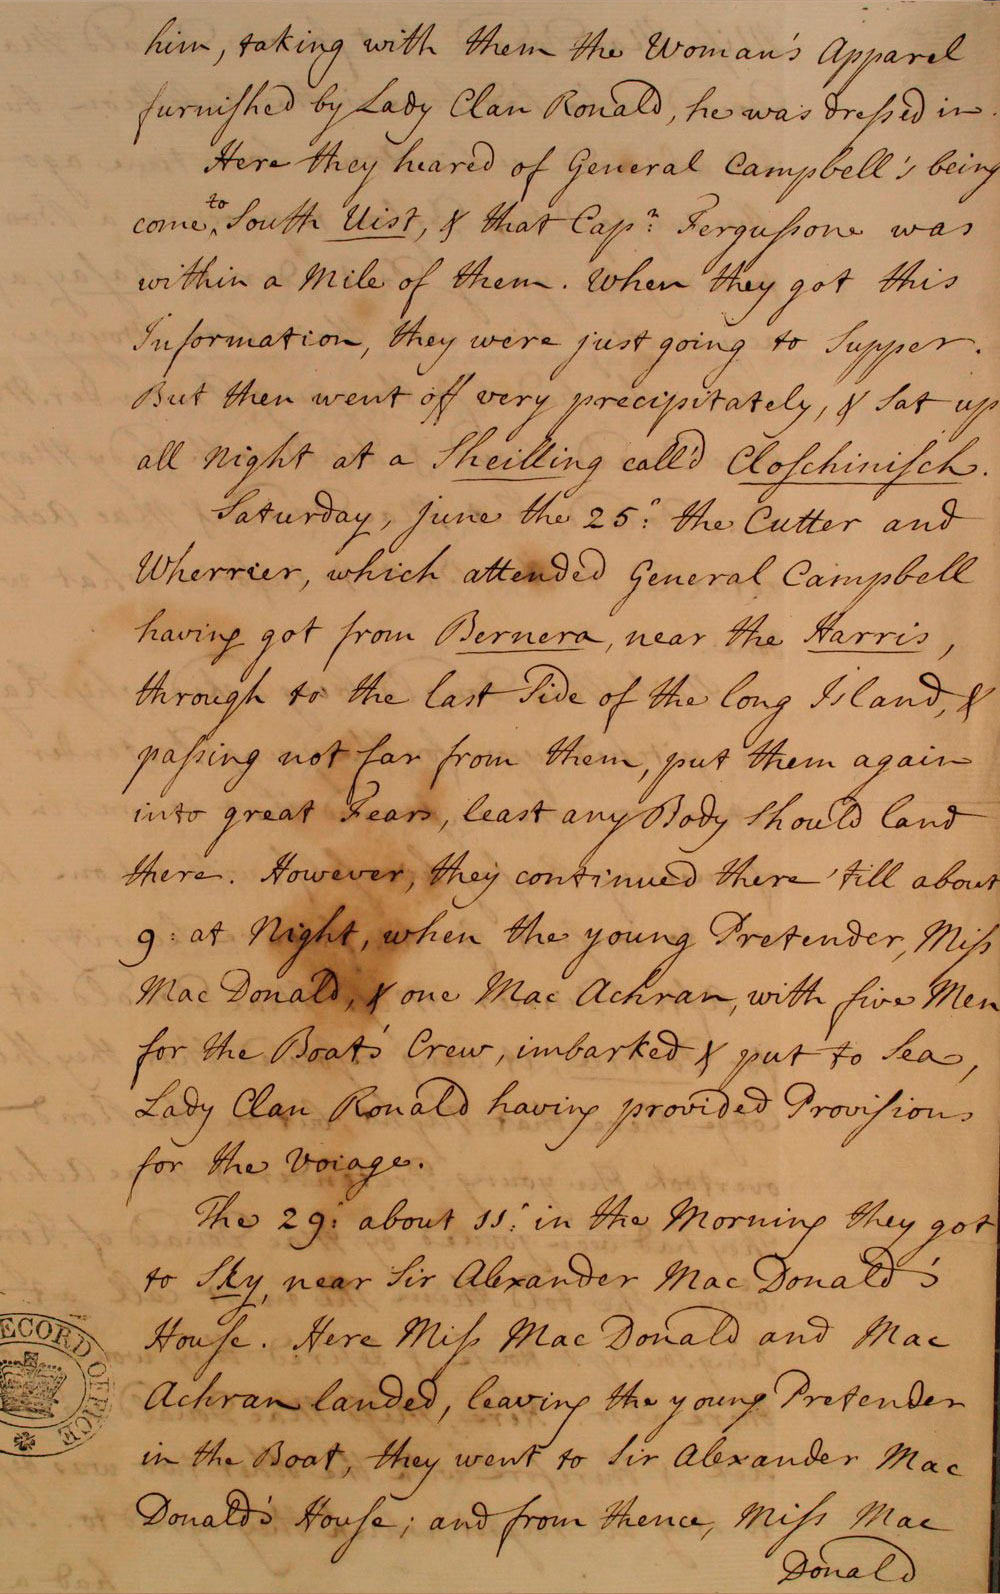 him, taking with them the Woman's Apparel
furniſhed by Lady Clan Ronald, he was dreſsed in.
Here they heared of General Campbell's being
come ^to South Uist, & that Cap.n Ferguſsone was
within a Mile of them. When they got this
Information, they were just going to Supper.
But then went off very precipitately, & Sat up
all Night at a Sheilling call'd Cloſchiniſch.
Saturday, June the 25: the Cutter and
Wherrier, which attended General Campbell
having got from Bernera, near the Harris,
through to the last Side of the long Island, &
paſsing not far from them, put them again
into great Fears, least any Body Should land
there. However, they continued there 'till about
9: at Night, when the young Pretender, Miſs
Mac Donald, & one Mac Achran, with five Men
for the Boat's Crew, imbarked & put to Sea,
Lady Clan Ronald having provided Proviſions
for the Voiage.
The 29: about 11: in the Morning they got
to Sky, near Sir Alexander Mac Donald's
Houſe. Here Miſs Mac Donald and Mac
Achran landed, leaving the young Pretender
in the Boat, they went to Sir Alexander Mac
Donald's Houſe; and from thence, Miſs Mac
Donald
ECORD OFFICE